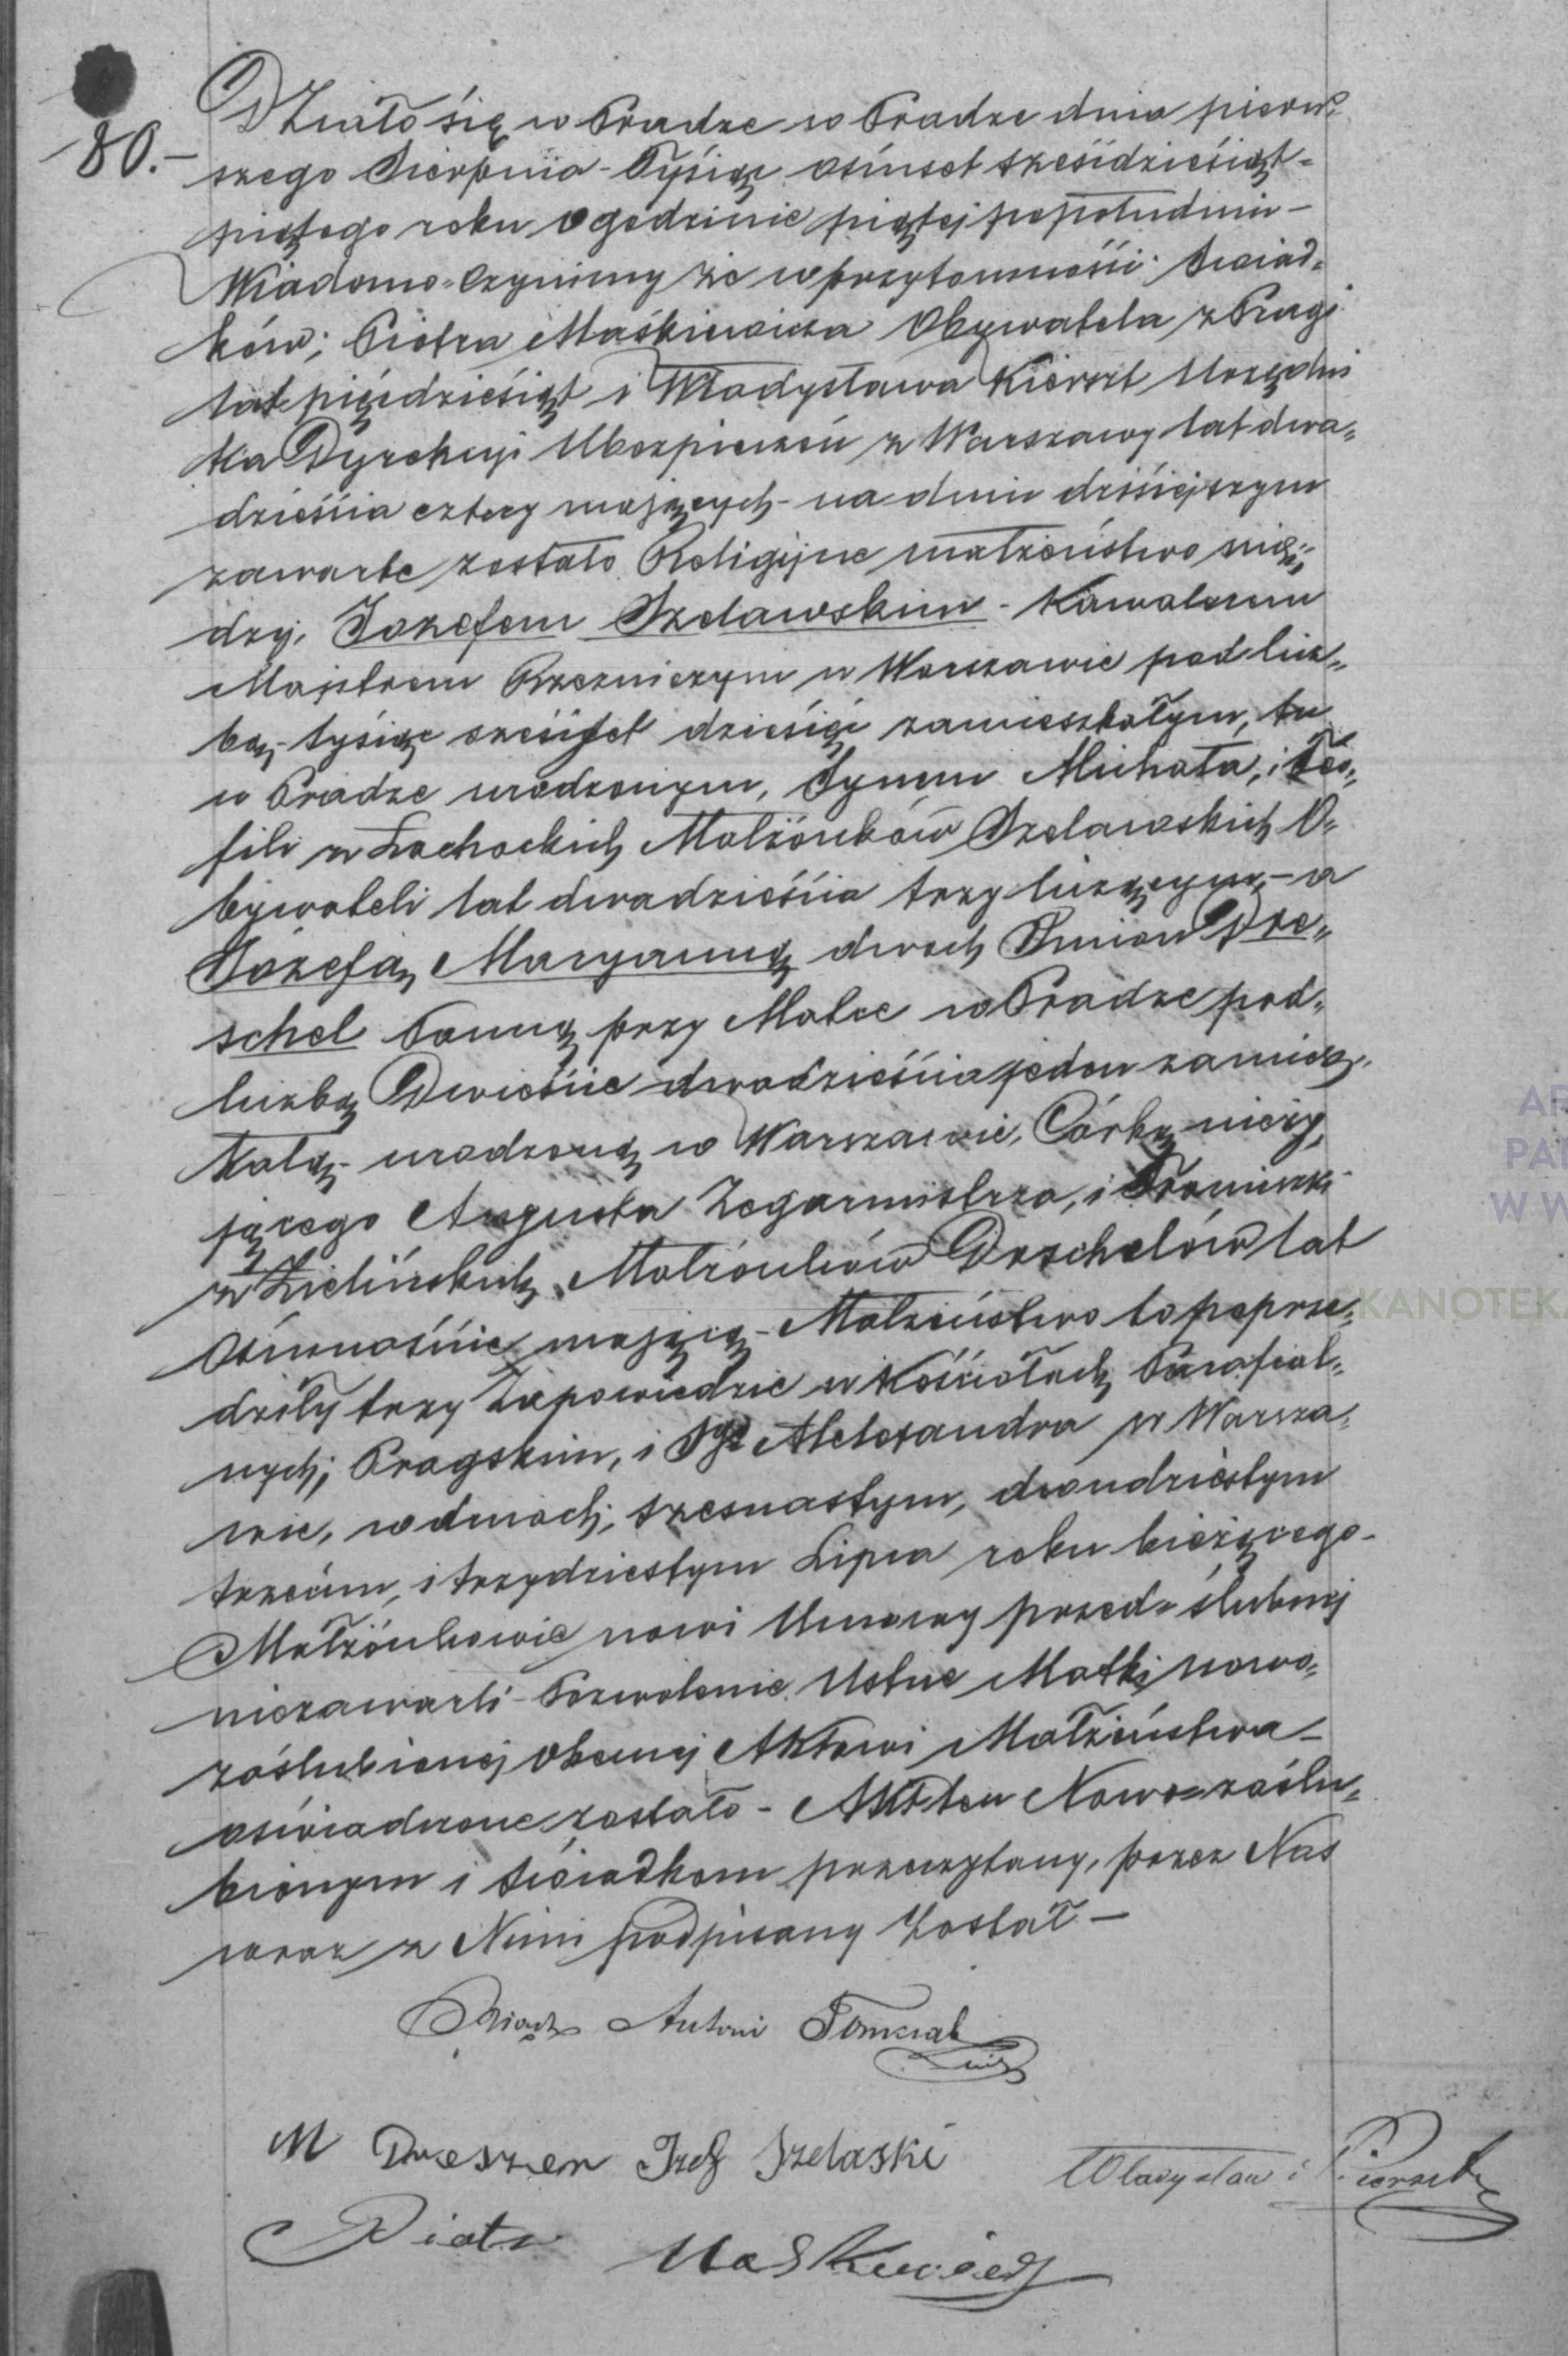 80.-
Działo się w Pradze w Pradze dnia pierw=
szego Sierpnia - Tysiąc osimset sześćdziesiąt=
piątego roku o godzinie piątej popołudniu -
Wiadomo-Czyniemy że w przytomności Świad=
ków; Piotra Maśkiewicza Obywatela z Pragi
lat pięćdziesiąt i Władysława Kierszt Urzędni
ka Dyrekcyi Ubezpieczeń z Warszawy lat dwa=
dzieścia cztery mających - na dniu dzisiejszym
zawarte zostało Religijne małżeństwo mię=
dzy, Jozefem Szelawskim - Kawalerem
Majstrem Rzezniczym w Warszawie pod licz=
bą, tysiąc sześćset dziesięć zamieszkałym, tu
w Pradze urodzonym, Synem Michała, i Teo=
fili z Lochockich Małżonków Szelawskich O=
bywateli lat dwadzieścia trzy liczącym, - a
Jozefą, Maryanną dwoch Imion Dre=
schel Panną przy Matce w Pradze pod
liczbą Dwieście dwadzieścia jeden zamiesz=
kałą - urodzoną w Warszawie, Córką nieży=
jącego Augusta Zegarmistrza, i Franciszki
z Zielińskich Małżonków Dreschelów lat
Ośmnaście mającą - Małżeństwo to poprze=
dziły trzy Zapowiedzie w Kościołach Parafial=
nych; Pragskim, i Sgo Alexandra w Warsza=
wie, w dniach; szesnastym, dwudziestym
trzecim, i trzydziestym Lipca roku bieżącego -
Małżonkowie nowi Umowy przed=ślubnej
niezawarli - Pozwolenie Ustne Matki nowo=
zaślubionej Obecnej Aktowi Małżeństwa -
oświadczone zostało - Akt ten Nowo=zaślu=
bionym i świadkom przeczytany, przez Nas
wraz z Nimi podpisany Został -
Ksiądz Antoni
M Dreszer Jzef Szelaski Władysław Kierszt
Piotr Maskiewicz
SKANOTEK